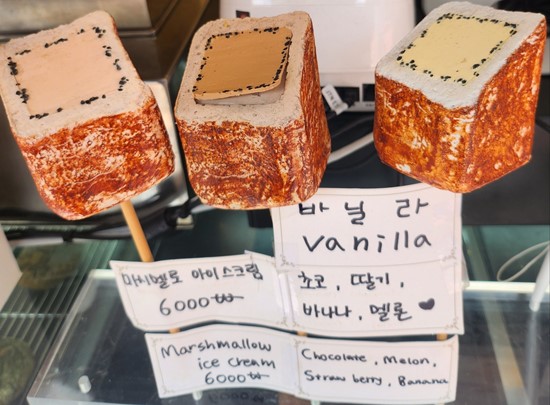 바닐라
vanilla
마시멜로 아이스크림
6000₩
초코, 딸기,
바나나, 멜론 ♥
Marshmallow
ice cream
6000₩
Chocolate, Melon,
Strawberry, Banana